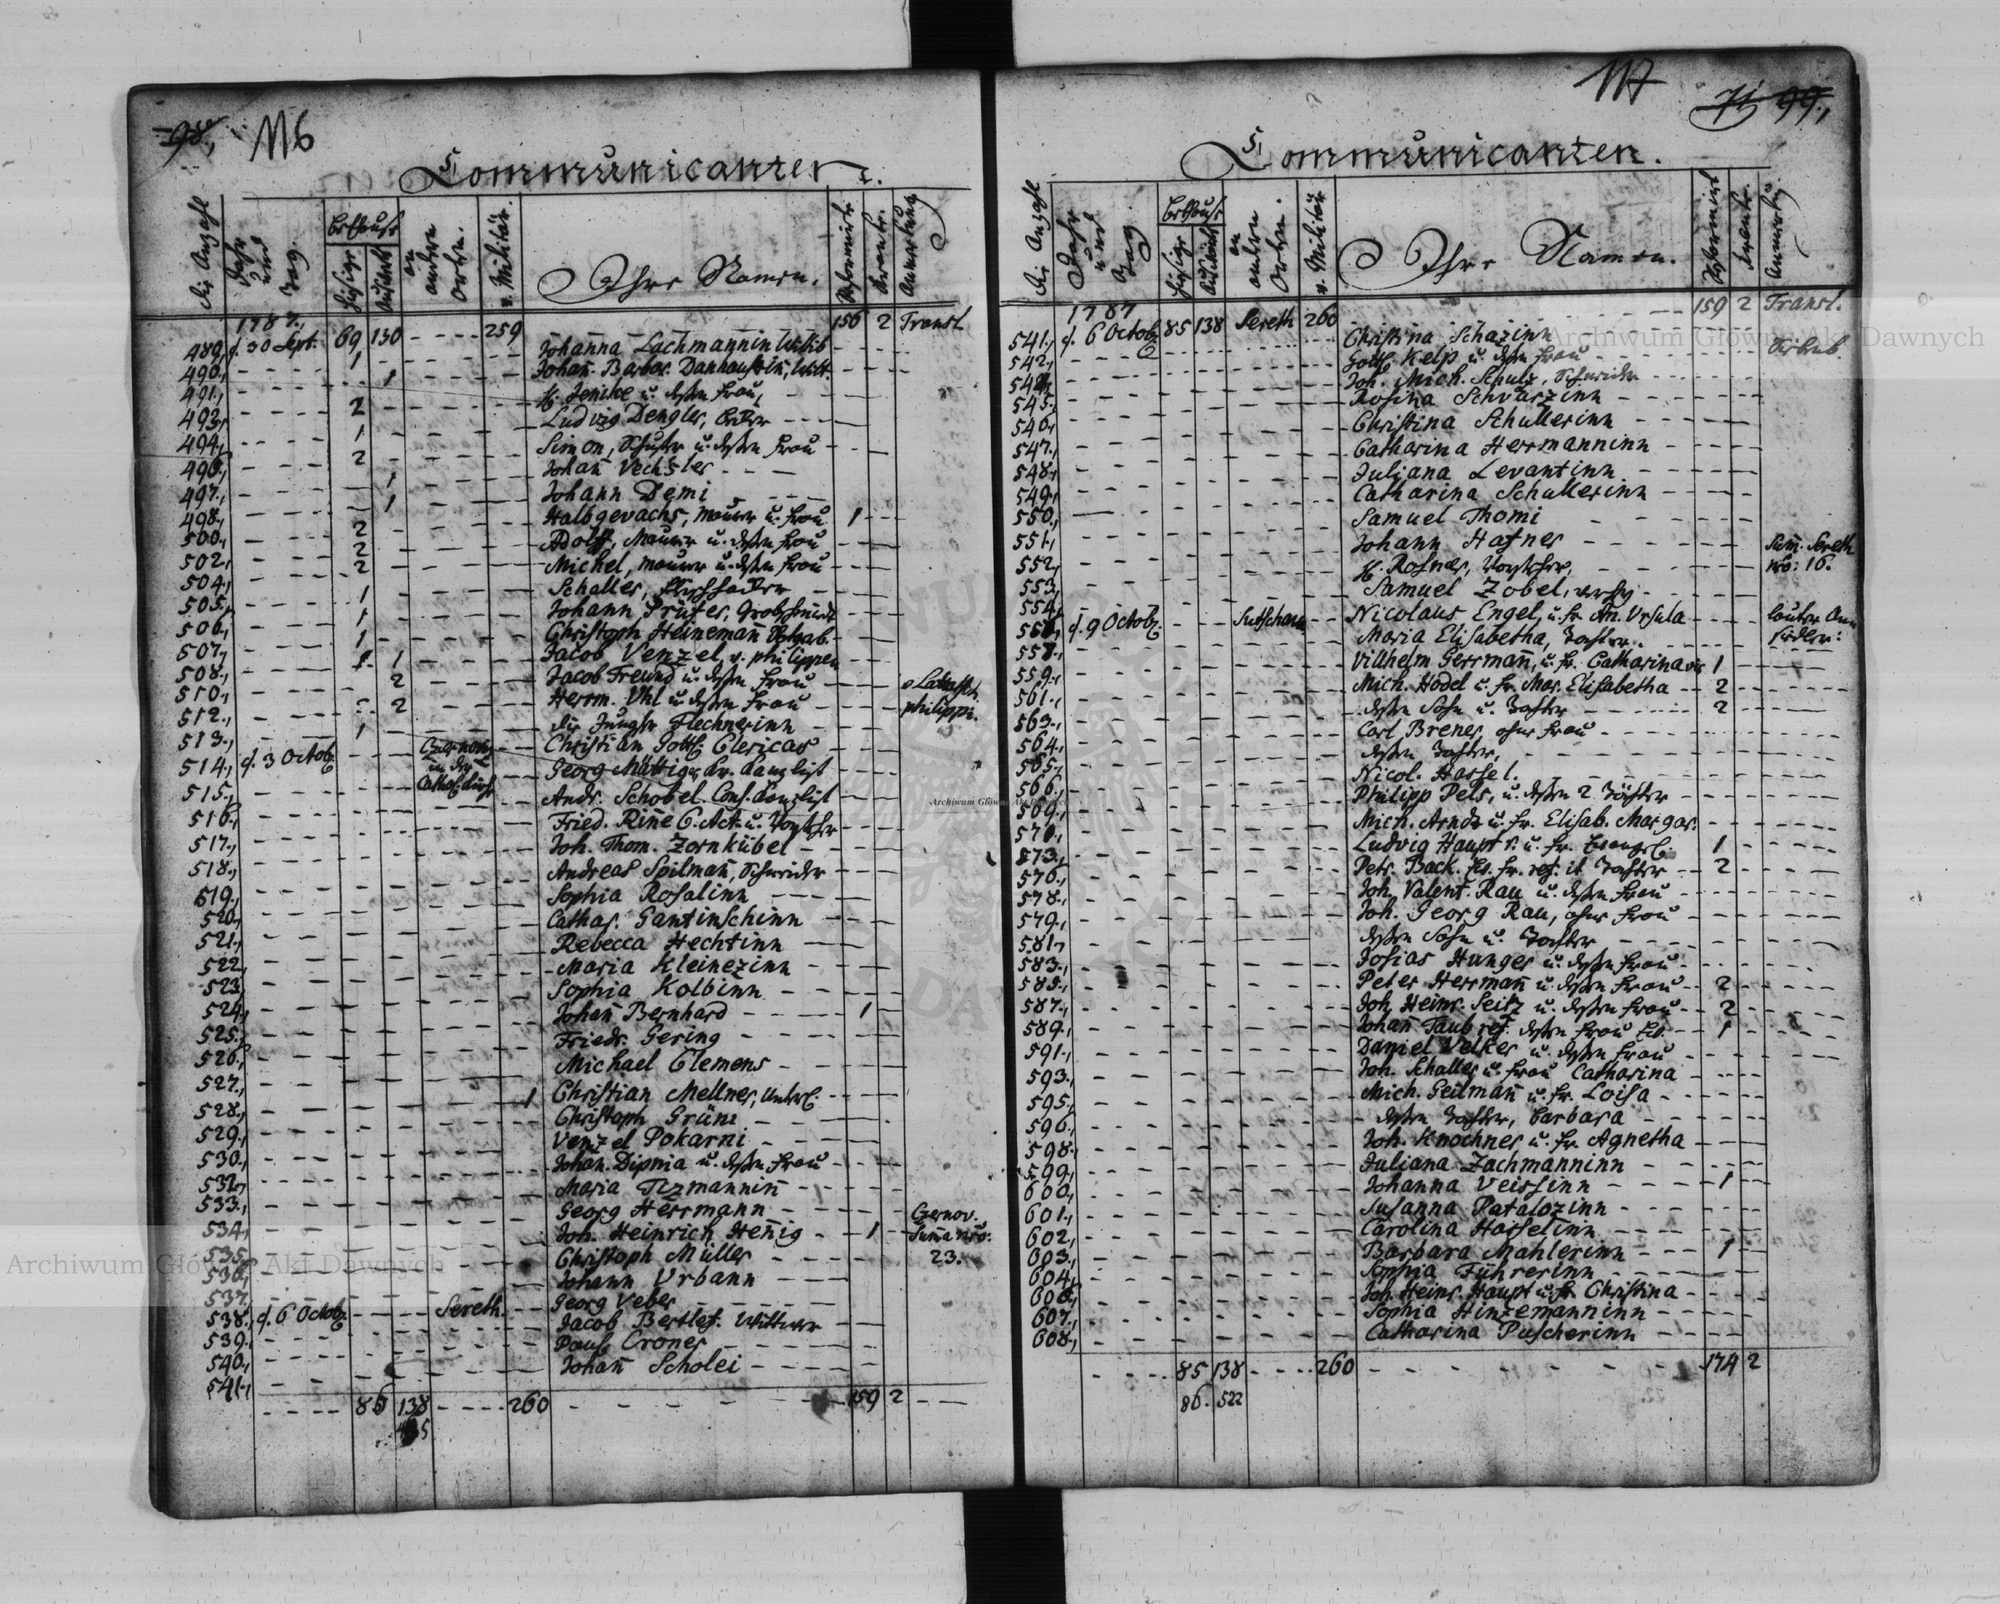 98., 116
Communicanten.
die Anzahl
Jahr und Tag.
Bethaus
hiesige
Auswärt.
an andern Orten.
v. Militär.
Ihre Namen.
Reformirte
Krancke.
Anmerkung
1787. 69 130 - - - - 259 156 2 Transl.
489., d. 30 Sept. 1 Johanna Lachmannin Wittib
490., 1 Johañ. Barbar. Danhauserin, Witt.
491., 2 H. Jencke u. deßen Frau,
493., 1 Ludvig Dengler,
494., 2 Simon, Schuster u. deßen Frau
496., 1 Johañ Vechsler
497., 1 Johann Demi
498., 2 Halbgevachs, Maurer u. Frau 1
500., 2 Adolff, Maurer u. deßen Frau
502., 2 Michel, Maurer u. deßen Frau
504., 1 Schaller,
505., 1 Johann Prüfer, Grobschmidt
506., 1 Christoph Heinemañ
507., 1 Jacob Venzel v. philippen
508., 2 Jacob Freund u. deßen Frau
510., 2 Herrm. Uhl u. deßen Frau philippi.
512., 1 die Jungfr Flechnerinn
513., d. 3 Octob. Czernov. Christian Gottf. Clericas
514., in der Georg Mättig, Kr. Kanzlist
515., Cathol. Kirch. Andr. Schobel. Cons. Kanzlist
516., Fried. Rine C. Act. u. Vorsteher
517., Joh. Thom. Zornkübel
518., Andreas Spilmañ, Schneider
519., Sophia Rosalinn
520., Cathar. Gantinschinn
521., Rebecca Hechtinn
522., Maria Kleinezinn
523., Sophia Kolbinn
524., Johañ Bernhard 1
525., Friedr. Gering
526., Michael Clemens
527., 1 Christian Mellner,
528., Christoph Grüni
529., Venzel Pokarni
530., Johañ. Dipnia u. deßen Frau
532., Maria Tizmannin
533., Georg Herrmann Czernov.
534., Joh. Heinrich Henig 1 Suma nro.
535., Christoph Müller 23.
536., Johann Urbann
537., Georg Veber
538., d. 6 Octob. Sereth. Jacob Bertlef. Wittwer
539., Paul Croner
540., Johañ Scholei
541.,
85 138 - - - - 260 159 2
117 71 99.,
Communicanten.
die Anzahl
Jahr und Tag
Bethaus
hiesige
Auswärt.
an andern Orten.
v. Militär
Ihre Namen.
Reformirte
Krancke.
Anmerkung
1787 159 2 Transl.
541., d. 6 Octob. 85 138 Sereth 260 Christina Schazinn
542., Gottf. Kelp u. deßen Frau
544., Joh. Mich. Schulz, Schneider
545., Rosina Schvarzinn
546., Christina Schullerinn
547., Catharina Herrmanninn
548., Juliana Levantinn
549., Catharina Schullerinn
550., Samuel Thomi
551., Johann Hafner Sum. Sereth
552., H. Rosner, Vorsteher, nro: 16.
553., Samuel Zobel,
554., d. 9 Octob. Sutschava Nicolaus Engel, u. fr. An. Ursula lauter An-
556., Maria Elisabetha, Tochter. siedler:
557., Villhelm Germañ, u. fr. Catharina 1
559., Mich. Hodel u. fr. Mar. Elisabetha 2
561., deßen Sohn u. Tochter 2
563., Carl Brener, ohne Frau
564., deßen Tochter,
565., Nicol. Hassel.
566., Philipp Pels, u. deßen 2 Töchter
569., Mich. Arndt u. fr. Elisab. Margar.
571., Ludvig Haupt r. u. fr. Evangel. 1
573., Petr. Back. Ev. fr. ref. it Tochter 2
576., Joh. Valent. Rau u. deßen Frau
578., Joh. Georg Rau, ohne Frau
579., deßen Sohn u. Tochter
581., Josias Hunger u. deßen Frau
583., Peter Herrmañ u. deßen Frau 2
585., Joh. Heinr. Seitz u. deßen Frau 2
587., Johañ Taub ref. deßen Frau Ev. 1
589., Daniel Velker u. deßen Frau
591., Joh. Schaller u. Frau Catharina
593., Mich. Geilmañ u. fr. Loisa
595., deßen Tochter, Barbara
596., Joh. Knochner u. fr. Agnetha
598., Juliana Zachmanninn
599., Johanna Veissinn 1
600., Susanna Patalozinn
601., Carolina Hasselinn
602., Barbara Mahlerinn 1
603., Sophia Führerinn
604., Joh. Heinr. Haupt u. fr Christina
606., Sophia Hinzemanninn
607., Catharina Puscherinn
608.,
85 138 - - - - 260 174 2
86. 522
Archiwum Główne Akt Dawnych
Archiwum Główne Akt Dawnych
Archiwum Główne Akt Dawnych